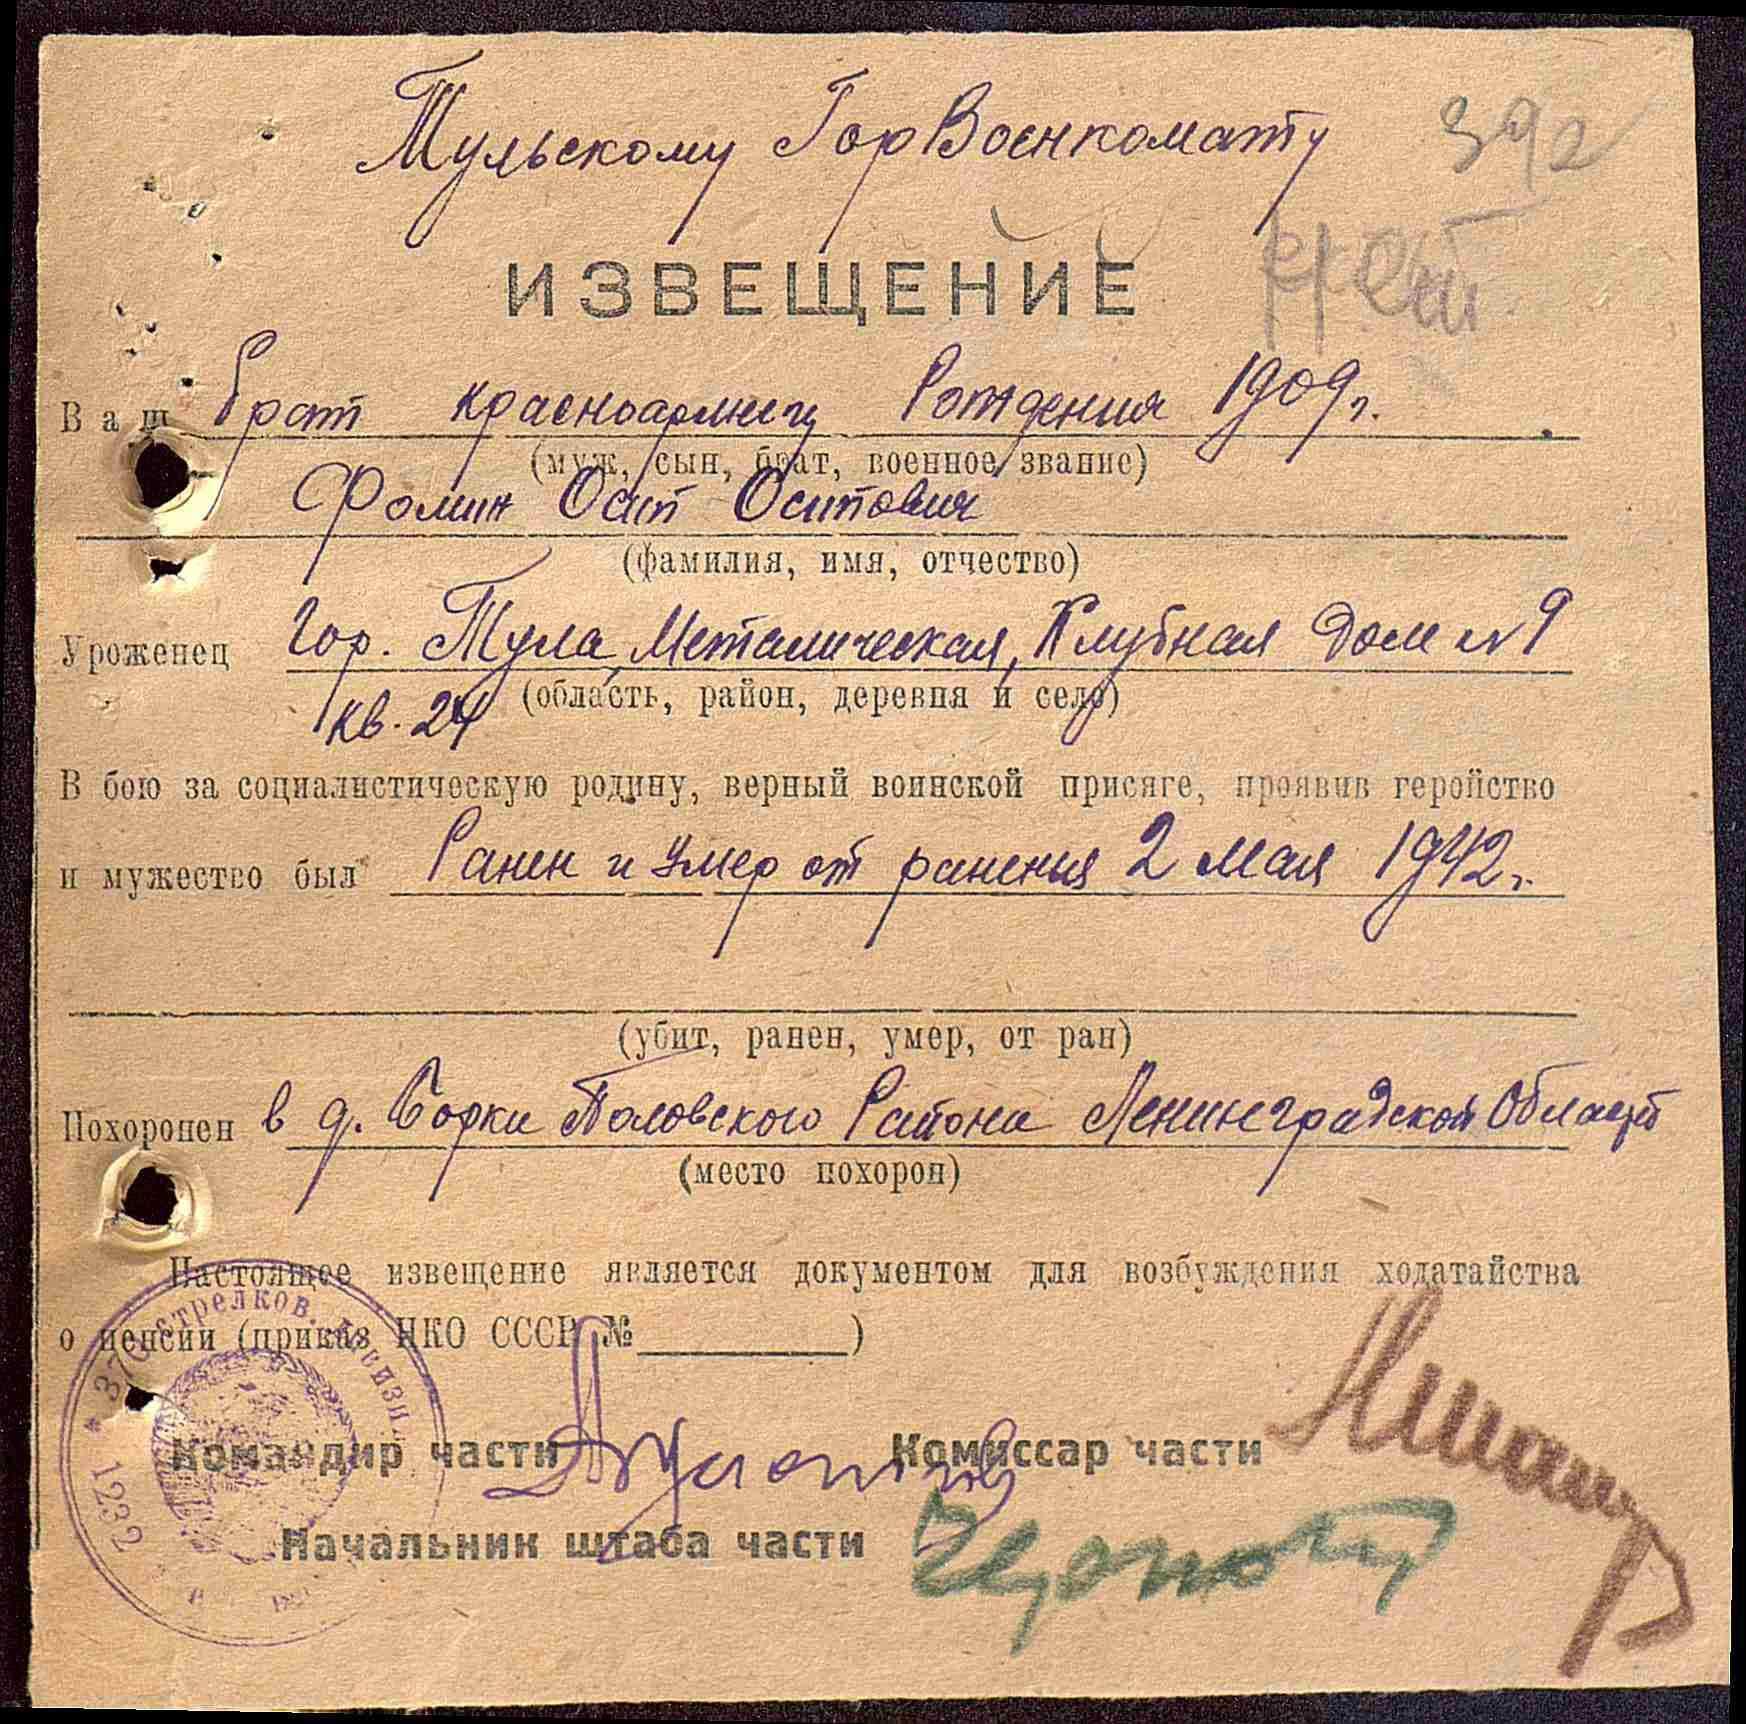 Тульскому ГорВоенкомату
392
ИЗВЕЩЕНИЕ
Ваш брат красноармеец Рождения 1909 г.
(муж, сын, брат, военное звание)
Фомин Осип Осипович
(фамилия, имя, отчество)
Уроженец Гор. Тула, Металическая, Клубная Дом № 9
кв. 24 (область, район, деревня и село)
В бою за социалистическую родину, верный воинской присяге, проявив геройство
и мужество был Ранен и умер от ранения 2 мая 1942 г.
(убит, ранен, умер, от ран)
Похоронен в д. Борки Половского Района Ленинградской Области
(место похорон)
Настоящее извещение является документом для возбуждения ходатайства
о пенсии (приказ НКО СССР № )
* 370 стрелков. дивизи
1232
Командир части Комиссар части
Начальник штаба части